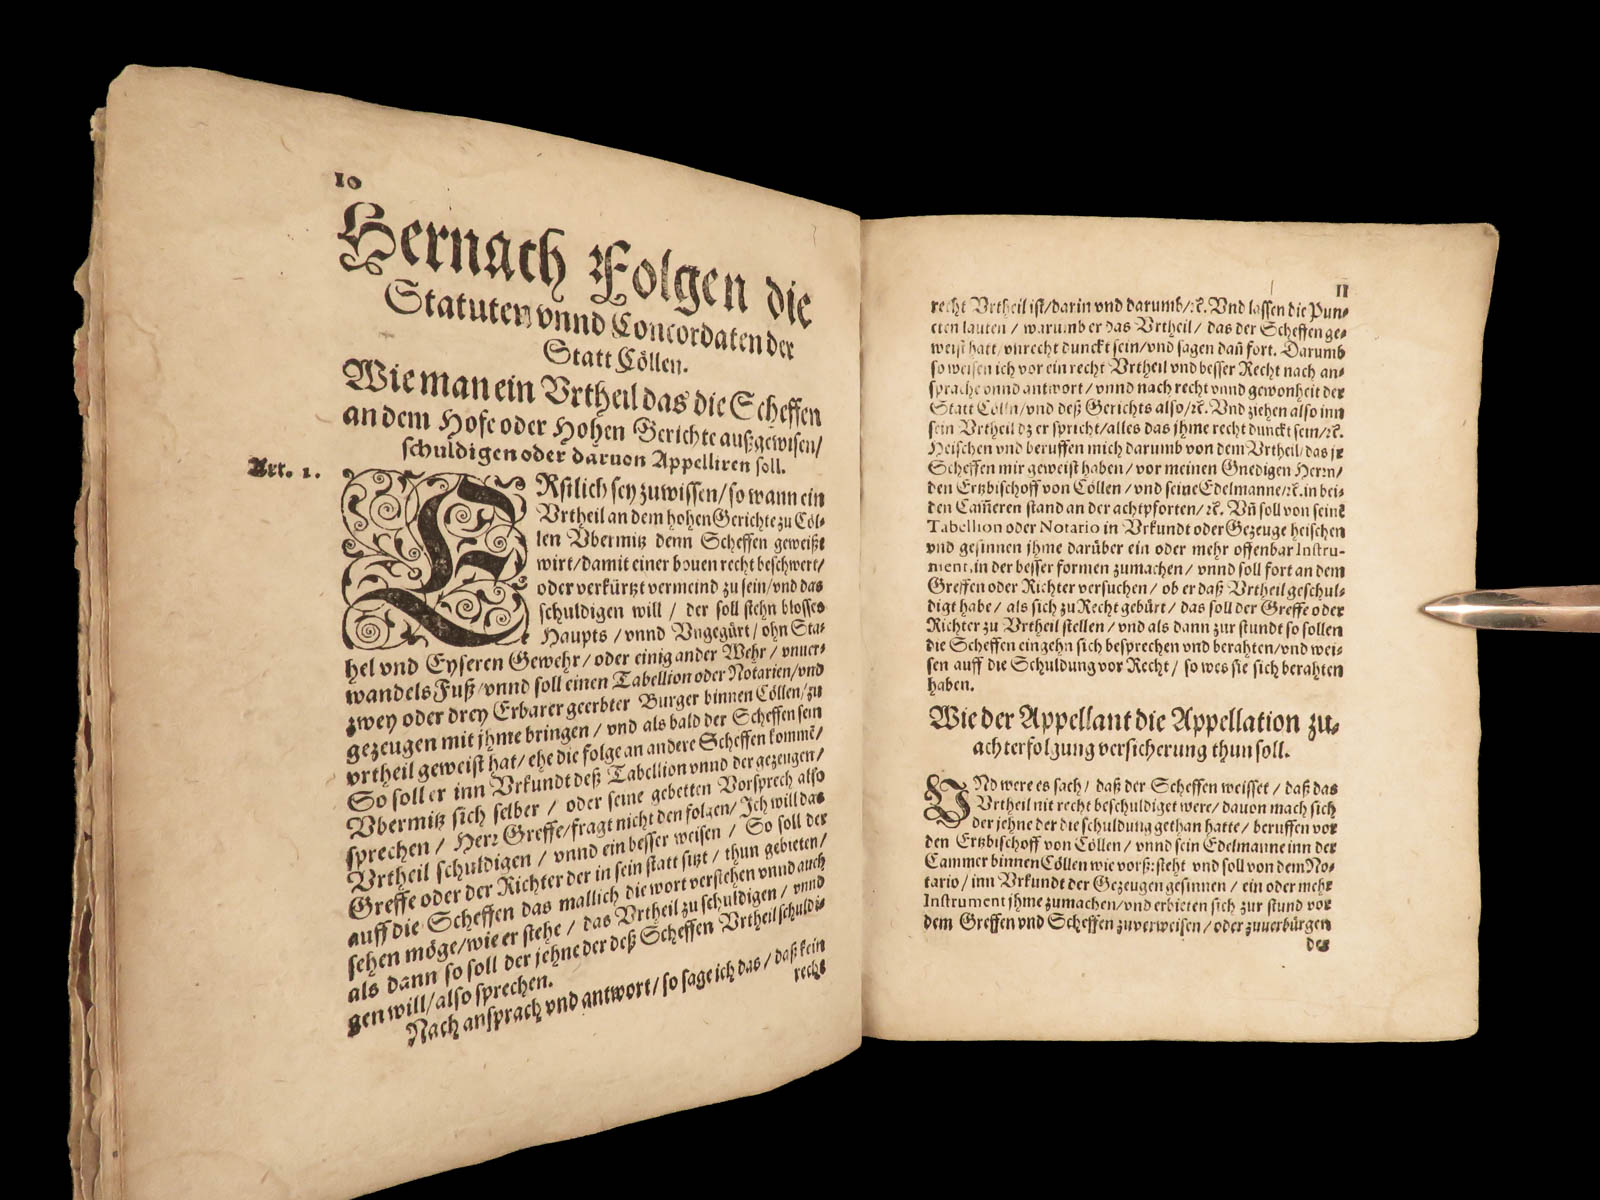 10
Hernach Folgen die
Statuten vnnd Concordaten der
Statt Cöllen.
Wie man ein Vrtheil das die Scheffen
an dem Hofe oder Hohen Gerichte außgewisen/
schuldigen oder daruon Appelliren soll.
Art. 1.
ERstlich sey zuwissen/ so wann ein
Vrtheil an dem hohen Gerichte zu Cöl-
len Vbermitz denn Scheffen geweißt
wirt/ damit einer bouen recht beschwert/
oder verkürtzt vermeind zu sein/ vnd das
schuldigen will / der soll stehn blosses
Haupts / vnnd Vngegürt/ ohn Sta-
hel vnd Eyseren Gewehr/ oder einig ander Wehr / vnuer-
wandels Fuß/ vnnd soll einen Tabellion oder Notarien/ vnd
zwey oder drey Erbarer geerbter Burger binnen Cöllen/ zu
gezeugen mit jhme bringen / vnd als bald der Scheffen sein
vrtheil geweist hat/ ehe die folge an andere Scheffen kommē/
So soll er inn Vrkundt deß Tabellion vnnd der gezeugen/
Vbermitz sich selber / oder seine gebetten Vorsprech also
sprechen / Herr Greffe/ fragt nicht den folgen/ Ich will das
Vrtheil schuldigen / vnnd ein besser weisen / So soll der
Greffe oder der Richter der in sein statt sitzt / thun gebieten/
auff die Scheffen das mallich die wort verstehen vnnd auch
sehen möge/ wie er stehe / das Vrtheil zu schuldigen / vnnd
als dann so soll der jehne der deß Scheffen Vrtheil schuldi-
gen will/ also sprechen.
Nach ansprach vnd antwort/ so sage ich das / daß kein
recht
11
recht Vrtheil ist/ darin vnd darumb/ ꝛc. Vnd lassen die Pun-
cten lauten / warumb er das Vrtheil / das der Scheffen ge-
weist hatt/ vnrecht dunckt sein/ vnd sagen dañ fort. Darumb
so weisen ich vor ein recht Vrtheil vnd besser Recht nach an-
sprache vnnd antwort / vnnd nach recht vnnd gewonheit der
Statt Cölln/ vnd deß Gerichts also/ ꝛc. Vnd ziehen also inn
sein Vrtheil dz er spricht/ alles das jhme recht dunckt sein/ ꝛc.
Heischen vnd beruffen mich darumb von dem Vrtheil/ das jr
Scheffen mir geweist haben / vor meinen Gnedigen Herrn/
den Ertzbischoff von Cöllen / vnd seine Edelmanne/ ꝛc. in bei-
den Cam̃eren stand an der achtpforten/ ꝛc. Vñ soll von seinē
Tabellion oder Notario in Vrkundt oder Gezeuge heischen
vnd gesinnen jhme darüber ein oder mehr offenbar Instru-
ment, in der besser formen zumachen / vnnd soll fort an dem
Greffen oder Richter versuchen / ob er daß Vrtheil geschul-
digt habe / als sich zu Recht gebürt / das soll der Greffe oder
Richter zu Vrtheil stellen / vnd als dann zur stundt so sollen
die Scheffen eingehn sich besprechen vnd berahten/ vnd wei-
sen auff die Schuldung vor Recht / so wes sie sich berahten
haben.
Wie der Appellant die Appellation zu-
achterfolgung versicherung thun soll.
VNd were es sach / daß der Scheffen weisset / daß das
Vrtheil nit recht beschuldiget were/ dauon mach sich
der jehne der die schuldung gethan hatte / beruffen vor
den Ertzbischoff von Cöllen / vnnd sein Edelmanne inn der
Cammer binnen Cöllen wie vorß: steht vnd soll von dem No-
tario / inn Vrkundt der Gezeugen gesinnen / ein oder mehr
Instrument jhme zumachen/ vnd erbieten sich zur stund vor
dem Greffen vnd Scheffen zuverweisen / oder zuuerbürgen
des